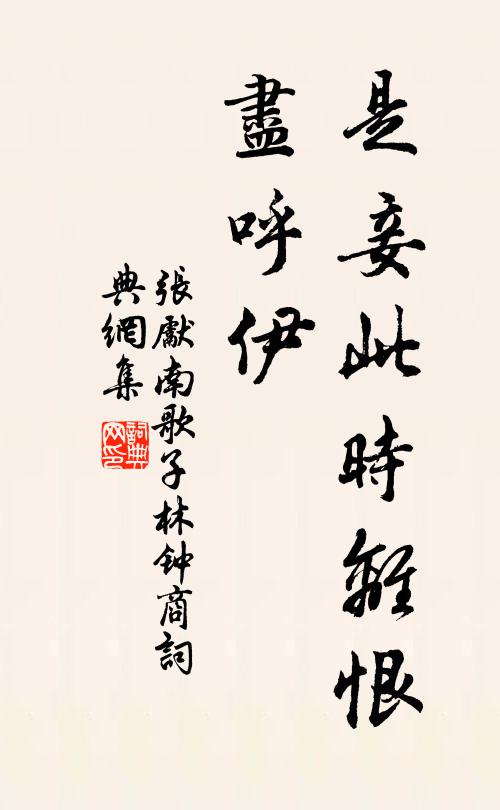 是妾此時離恨
盡呼伊
張獻南歌子林钟商詞
典網集
詞典网印